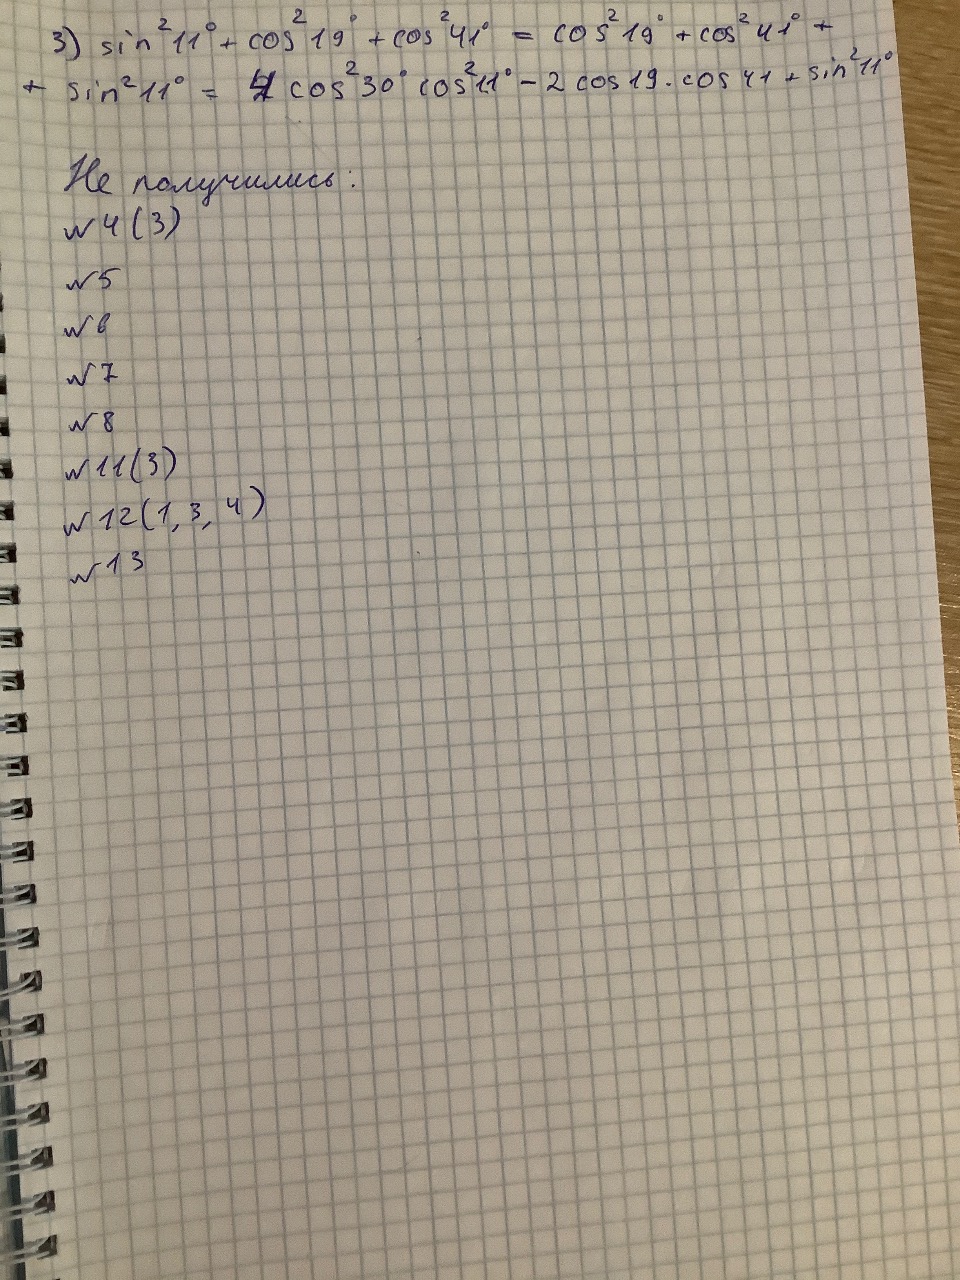 3) sin²11° + cos²19° + cos²41° = cos²19° + cos²41° +
+ sin²11° = 4 cos²30° cos²11° - 2 cos19 · cos 41 + sin²11°
Не получились:
№4(3)
№5
№6
№7
№8
№11(3)
№12(1, 3, 4)
№13